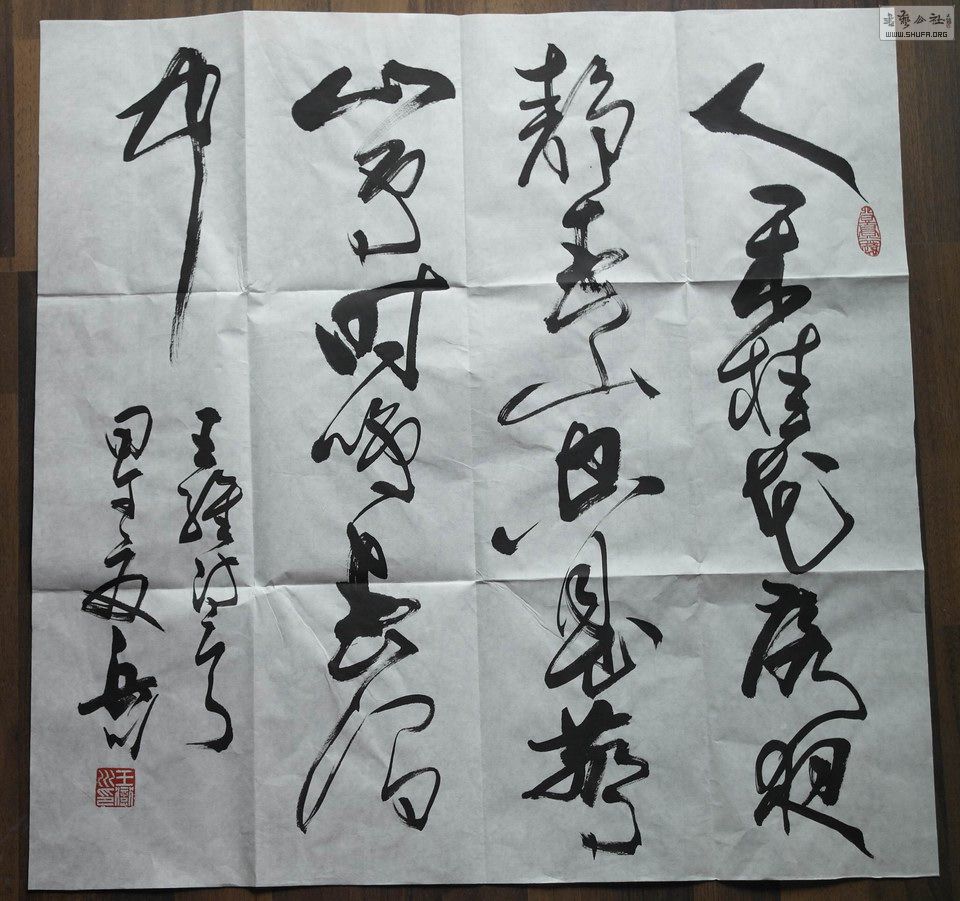 人闲桂花落夜
静春山空月出惊
山鸟时鸣春涧
中
王維诗
甲午夏
书艺公社
WWW.SHUFA.ORG